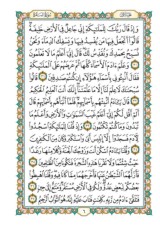 وَإِذْ قَالَ رَبُّكَ لِلْمَلَٰٓئِكَةِ إِنِّى جَاعِلٌ فِى ٱلْأَرْضِ خَلِيفَةً
قَالُوٓا۟ أَتَجْعَلُ فِيهَا مَن يُفْسِدُ فِيهَا وَيَسْفِكُ ٱلدِّمَآءَ وَنَحْنُ
نُسَبِّحُ بِحَمْدِكَ وَنُقَدِّسُ لَكَ قَالَ إِنِّىٓ أَعْلَمُ مَا لَا تَعْلَمُونَ
وَعَلَّمَ ءَادَمَ ٱلْأَسْمَآءَ كُلَّهَا ثُمَّ عَرَضَهُمْ عَلَى ٱلْمَلَٰٓئِكَةِ
فَقَالَ أَنۢبِـُٔونِى بِأَسْمَآءِ هَٰٓؤُلَآءِ إِن كُنتُمْ صَٰدِقِينَ
قَالُوا۟ سُبْحَٰنَكَ لَا عِلْمَ لَنَآ إِلَّا مَا عَلَّمْتَنَآ إِنَّكَ أَنتَ ٱلْعَلِيمُ
ٱلْحَكِيمُ قَالَ يَٰٓـَٔادَمُ أَنۢبِئْهُم بِأَسْمَآئِهِمْ فَلَمَّآ أَنۢبَأَهُم بِأَسْمَآئِهِمْ
قَالَ أَلَمْ أَقُل لَّكُمْ إِنِّىٓ أَعْلَمُ غَيْبَ ٱلسَّمَٰوَٰتِ وَٱلْأَرْضِ وَأَعْلَمُ
مَا تُبْدُونَ وَمَا كُنتُمْ تَكْتُمُونَ وَإِذْ قُلْنَا لِلْمَلَٰٓئِكَةِ ٱسْجُدُوا۟
لِـَٔادَمَ فَسَجَدُوٓا۟ إِلَّآ إِبْلِيسَ أَبَىٰ وَٱسْتَكْبَرَ وَكَانَ مِنَ ٱلْكَٰفِرِينَ
وَقُلْنَا يَٰٓـَٔادَمُ ٱسْكُنْ أَنتَ وَزَوْجُكَ ٱلْجَنَّةَ وَكُلَا مِنْهَا رَغَدًا
حَيْثُ شِئْتُمَا وَلَا تَقْرَبَا هَٰذِهِ ٱلشَّجَرَةَ فَتَكُونَا مِنَ ٱلظَّٰلِمِينَ
فَأَزَلَّهُمَا ٱلشَّيْطَٰنُ عَنْهَا فَأَخْرَجَهُمَا مِمَّا كَانَا فِيهِ وَقُلْنَا ٱهْبِطُوا۟
بَعْضُكُمْ لِبَعْضٍ عَدُوٌّ وَلَكُمْ فِى ٱلْأَرْضِ مُسْتَقَرٌّ وَمَتَٰعٌ إِلَىٰ حِينٍ
فَتَلَقَّىٰٓ ءَادَمُ مِن رَّبِّهِۦ كَلِمَٰتٍ فَتَابَ عَلَيْهِ إِنَّهُۥ هُوَ ٱلتَّوَّابُ ٱلرَّحِيمُ
٦